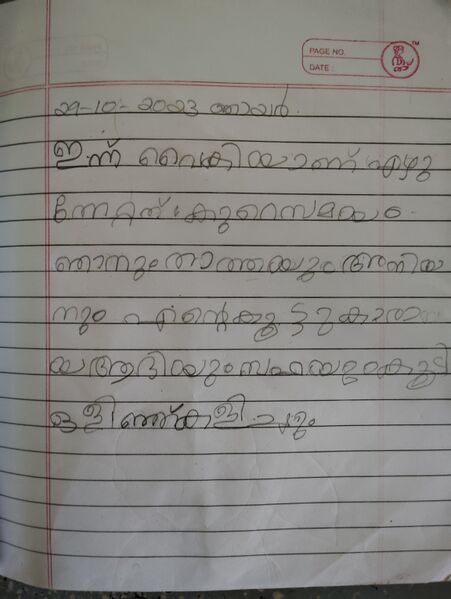 PAGE NO.
DATE :
29-10-2023 ഞായർ.
ഇന്ന് വൈകിയാണ് എഴു
ന്നേറ്റത് കുറെസമയം
ഞാനും താത്തയും അനിയ
നും എന്റെ കൂട്ടുകാരാ
യ ആദിയും കൂടി
ഒളിഞ്ഞ്കളിച്ചും